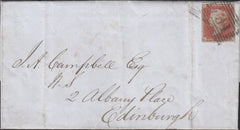 J. A. Campbell Esq
2 Albany Place
Edinburgh